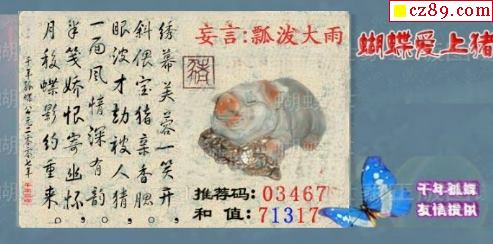 cz89.com
妄言:瓢泼大雨
蝴蝶爱上猪
绣幕芙蓉一笑开,
斜偎宝猪亲香腮,
眼波才动被人猜,
一面风情深有韵,
半笺娇恨寄幽怀,
月移蝶影约重来。
千年狐蝶
猪
推荐码:03467
和 值:71317
千年狐蝶
友情提供